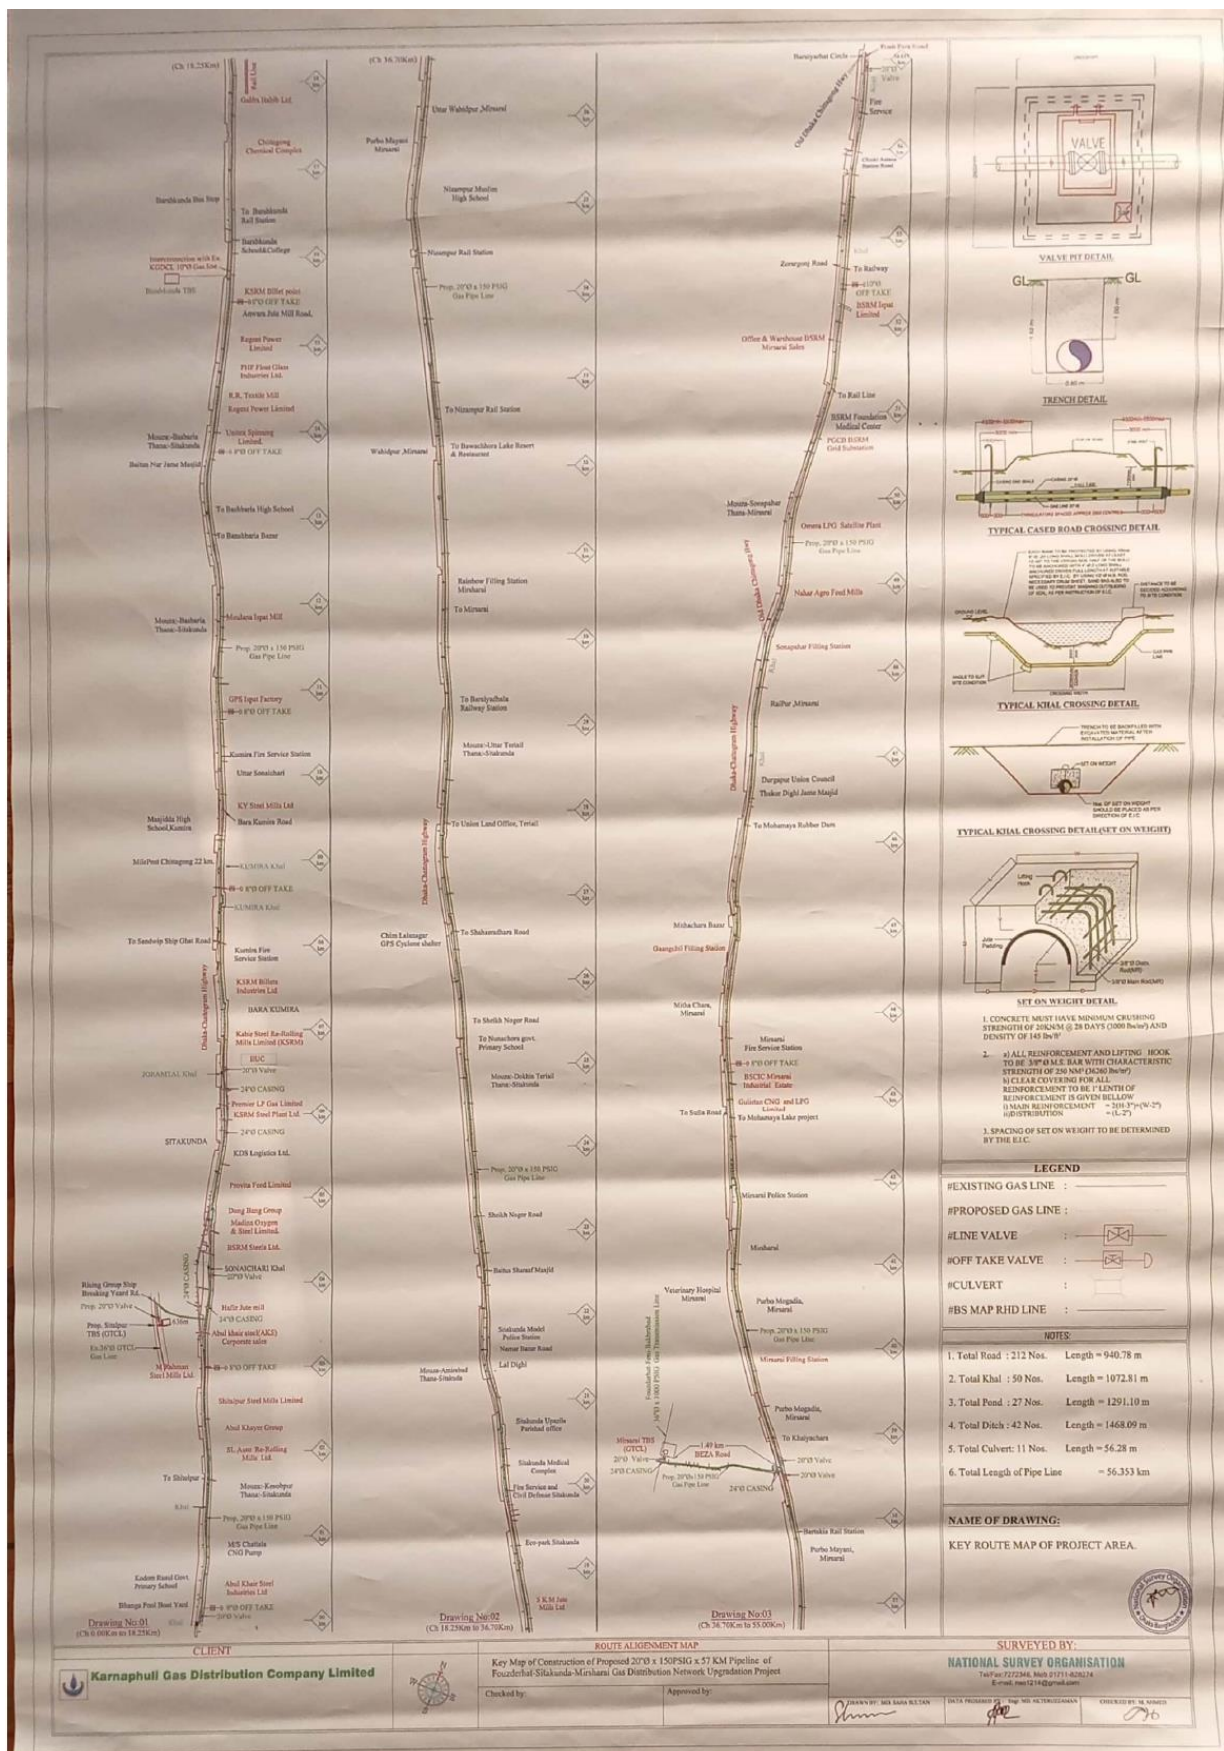 (Ch 18.25Km)
Rail Line
Galiba Habib Ltd.
Chittagong
Chemical Complex
Barabkunda Bus Stop
To Barabkunda
Rail Station
Barabkunda
School&College
Interconnection with Ex.
KGDCL 10"Ø Gas line
Barabkunda TBS
KSRM Billet point
OFF TAKE
Anwara Jute Mill Road,
Regent Power
Limited
PHP Float Glass
Industries Ltd.
R.R. Textile Mill
Regent Power Limited
Unitex Spinning
Limited.
Mouza:-Basbaria
Thana:-Sitakunda
8"Ø OFF TAKE
Baitun Nur Jame Masjid
To Bashbaria High School
To Banshbaria Bazar
Mouza:-Basbaria
Thana:-Sitakunda
Moulana Ispat Mill
Prop. 20"Ø x 150 PSIG
Gas Pipe Line
GPS Ispat Factory
8"Ø OFF TAKE
Kumira Fire Service Station
Uttar Sonaichari
KY Steel Mills Ltd
Masjidda High
School,Kumira
Bara Kumira Road
MilePost Chittagong 22 km.
KUMIRA Khal
8"Ø OFF TAKE
KUMIRA Khal
To Sandwip Ship Ghat Road
Kumira Fire
Service Station
Dhaka-Chattagram Highway
KSRM Billets
Industries Ltd.
BARA KUMIRA
Kabir Steel Re-Rolling
Mills Limited (KSRM)
IIUC
20"Ø Valve
24"Ø CASING
Premier LP Gas Limited
KSRM Steel Plant Ltd.
24"Ø CASING
SITAKUNDA
KDS Logistics Ltd.
Provita Feed Limited
Dong Bang Group
Madina Oxygen
& Steel Limited.
BSRM Steels Ltd.
24"Ø CASING
SONAICHARI Khal
20"Ø Valve
Rising Group Ship
Breaking Yaard Rd.
Prop. 20"Ø Valve
636m
Hafiz Jute mill
24"Ø CASING
Prop. Sitalpur
TBS (GTCL)
Abul khair steel(AKS)
Corporate sales
Ex.36"Ø GTCL
Gas Line
M Rahman
Steel Mills Ltd.
8"Ø OFF TAKE
Shitalpur Steel Mills Limited
Abul Khayer Group
SL Asor Re-Rolling
Mills Ltd.
To Shitalpur
Mouza:-Kesobpur
Thana:-Sitakunda
Khal
Prop. 20"Ø x 150 PSIG
Gas Pipe Line
M/S Chattala
CNG Pump
Kadam Rasul Govt.
Primary School
Abul Khair Steel
Industries Ltd
Bhanga Pool Boat Yard
OFF TAKE
20"Ø Valve
Khal
Drawing No:01
(Ch 0.00Km to 18.25Km)
(Ch 36.70Km)
Uttar Wahidpur ,Mirsarai
Purbo Mayani
Mirsarai
Nizampur Muslim
High School
Nizampur Rail Station
Prop. 20"Ø x 150 PSIG
Gas Pipe Line
To Nizampur Rail Station
Wahidpur ,Mirsarai
To Bawachhora Lake Resort
& Restaurant
Rainbow Filling Station
Mirsharai
To Mirsarai
To Baraiyadhala
Railway Station
Mouza:-Uttar Teriail
Thana:-Sitakunda
To Union Land Office, Teriail
Dhaka-Chattagram Highway
Chim Lalanagar
GPS Cyclone shelter
To Shahasradhara Road
To Sheikh Nagar Road
To Nunachora govt.
Primary School
Mouza:-Dokhin Teriail
Thana:-Sitakunda
Prop. 20"Ø x 150 PSIG
Gas Pipe Line
Sheikh Nagar Road
Baitus Sharaf Masjid
Sitakunda Model
Police Station
Namar Bazar Road
Lal Dighi
Mouza-Amirabad
Thana-Sitakuda
Sitakunda Upazila
Parishad office
Sitakunda Medical
Complex
Fire Service and
Civil Defense Sitakunda
Eco-park Sitakunda
S K M Jute
Mills Ltd
Drawing No:02
(Ch 18.25Km to 36.70Km)
Baraiyarhat Circle
20"Ø
Valve
Old Dhaka Chittagong Hwy
Fire
Service
Station Road
Khal
Zorargonj Road
To Railway
OFF TAKE
BSRM Ispat
Limited
Office & Warehouse BSRM
Mirsarai Sales
To Rail Line
BSRM Foundation
Medical Center
PGCB BSRM
Grid Substation
Mouza-Sonapahar
Thana-Mirsarai
Omera LPG Satellite Plant
Prop. 20"Ø x 150 PSIG
Gas Pipe Line
Old Dhaka Chittagong Hwy
Nahar Agro Feed Mills
Sonapahar Filling Station
Khal
RaiPur ,Mirsarai
Dhaka-Chattagram Highway
Khal
Durgapur Union Council
Thakur Dighi Jame Masjid
To Mohamaya Rubber Dam
Mithachara Bazar
Guangchil Filling Station
Mitha Chara,
Mirsarai
Mirsarai
Fire Service Station
8"Ø OFF TAKE
BSCIC Mirsarai
Industrial Estate
Gulistan CNG and LPG
Limited
To Sufia Road
To Mohamaya Lake project
Mirsarai Police Station
Mirsharai
Veterinary Hospital
Mirsarai
Purbo Mogadia,
Mirsarai
Prop. 20"Ø x 150 PSIG
Gas Pipe Line
Mirsarai Filling Station
Purbo Mogadia,
Mirsarai
To Khaiyachara
Mirsarai TBS
(GTCL)
1.49 km
BEZA Road
20"Ø Valve
20"Ø Valve
24"Ø CASING
20"Ø Valve
Prop. 20"Øx150 PSIG
Gas Pipe Line
24"Ø CASING
Bartakia Rail Station
Purbo Mayani,
Mirsarai
Drawing No:03
(Ch 36.70Km to 55.00Km)
VALVE
VALVE PIT DETAIL
GL
GL
0.80 m
TRENCH DETAIL
TYPICAL CASED ROAD CROSSING DETAIL
GROUND LEVEL
DISTANCE TO BE
DECIDED ACCORDING
TO SITE CONDITION
GAS PIPE
LINE
ANGLE TO SUIT
SITE CONDITION
CROSSING WIDTH
TYPICAL KHAL CROSSING DETAIL
TRENCH TO BE BACKFILLED WITH
EXCAVATED MATERIAL AFTER
INSTALLATION OF PIPE
SET ON WEIGHT
Nos. OF SET ON WEIGHT
SHOULD BE PLACED AS PER
DIRECTION OF E.I.C.
TYPICAL KHAL CROSSING DETAIL(SET ON WEIGHT)
Lifting
Hook
Jute
Padding
3/8"Ø Main Rod(MR)
SET ON WEIGHT DETAIL
1. CONCRETE MUST HAVE MINIMUM CRUSHING
STRENGTH OF 20KN/M @ 28 DAYS (3000 lbs/in²) AND
DENSITY OF 145 lbs/ft³
2. a) ALL REINFORCEMENT AND LIFTING HOOK
TO BE 3/8"Ø M.S. BAR WITH CHARACTERISTIC
STRENGTH OF 250 NM² (36260 lbs/in²)
b) CLEAR COVERING FOR ALL
REINFORCEMENT TO BE 1" LENTH OF
REINFORCEMENT IS GIVEN BELLOW
i) MAIN REINFORCEMENT = 2(H-3")+(W-2")
ii)DISTRIBUTION =(L-2")
3. SPACING OF SET ON WEIGHT TO BE DETERMINED
BY THE E.I.C.
LEGEND
#EXISTING GAS LINE :
#PROPOSED GAS LINE :
#LINE VALVE :
#OFF TAKE VALVE :
#CULVERT :
#BS MAP RHD LINE :
NOTES:
1. Total Road : 212 Nos. Length = 940.78 m
2. Total Khal : 50 Nos. Length = 1072.81 m
3. Total Pond : 27 Nos. Length = 1291.10 m
4. Total Ditch : 42 Nos. Length = 1468.09 m
5. Total Culvert: 11 Nos. Length = 56.28 m
6. Total Length of Pipe Line = 56.353 km
NAME OF DRAWING:
KEY ROUTE MAP OF PROJECT AREA.
National Survey Organisation
CLIENT
Karnaphuli Gas Distribution Company Limited
N
ROUTE ALIGNMENT MAP
Key Map of Construction of Proposed 20"Ø x 150PSIG x 57 KM Pipeline of
Fouzderhat-Sitakunda-Mirsharai Gas Distribution Network Upgradation Project
Checked by:
Approved by:
SURVEYED BY:
NATIONAL SURVEY ORGANISATION
Tel/Fax:7272346, Mob 01711-828274
E-mail. nso1214@gmail.com
DRAWN BY: MD. SAHA SULTAN
DATA PROSSED BY : Engr. MD. AKTERUZZAMAN
CHECKED BY: M. AHMED